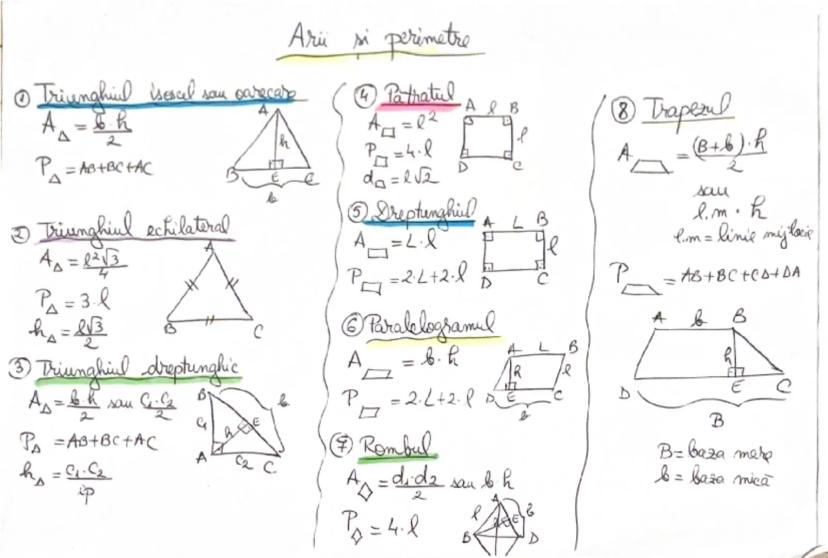 Arii si perimetre
① Triunghiul isoscel sau oarecare
A△ = b·h/2
P△ = AB+BC+AC
A
h
B E C
b
② Triunghiul echilateral
A△ = l²√3/4
P△ = 3·l
h△ = l√3/2
A
B C
③ Triunghiul dreptunghic
A△ = b·h/2 sau C₁·C₂/2
P△ = AB+BC+AC
h△ = C₁·C₂/ip
B b
C₁ h E
A C₂ C
④ Pătratul
A□ = l²
P□ = 4·l
d□ = l√2
A l B
l
D C
⑤ Dreptunghiul
A▭ = L·l
P▭ = 2·L+2·l
A L B
l
D C
⑥ Paralelogramul
A▱ = b·h
P▱ = 2·L+2·l
A L B
h l
D E C
b
⑦ Rombul
A◇ = d₁·d₂/2 sau b·h
P◇ = 4·l
A
l E b
B D
⑧ Trapezul
A = (B+b)·h/2
sau
l.m · h
l.m = linie mijlocie
P = AB+BC+CD+DA
A b B
h
D E C
B
B = baza mare
b = baza mică